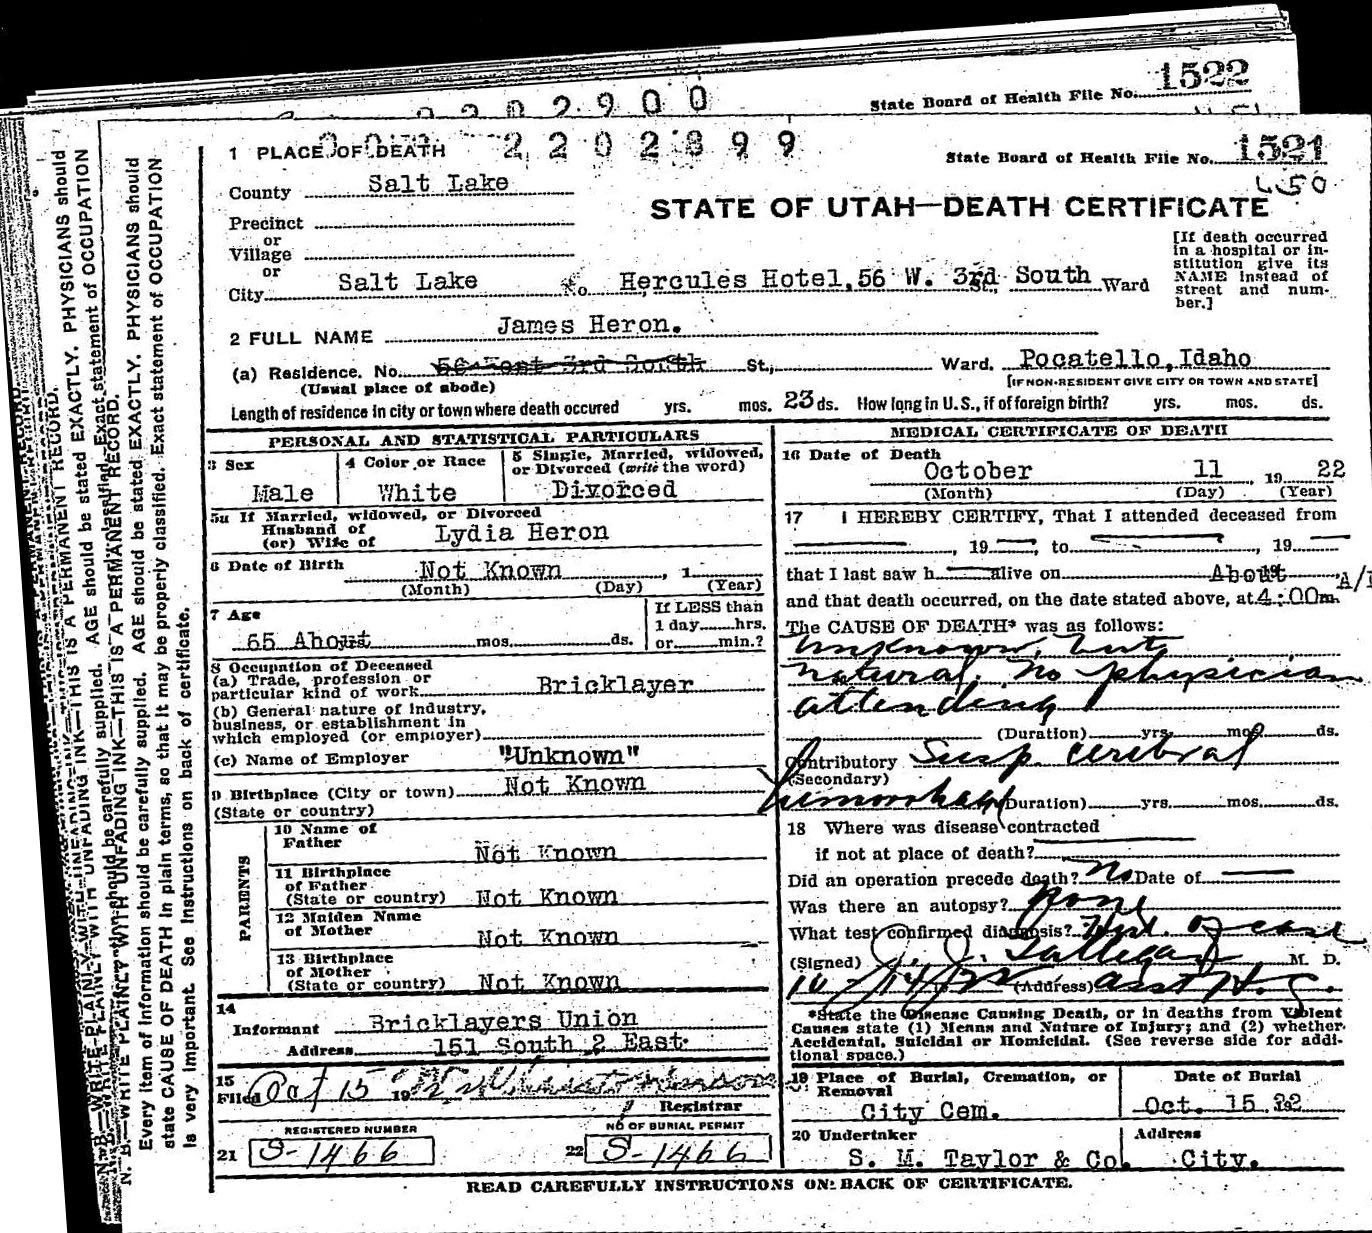 2202900
State Board of Health File No. 1522
1 PLACE OF DEATH
2202899
State Board of Health File No. 1521
County Salt Lake
450
STATE OF UTAH—DEATH CERTIFICATE
Precinct
or
Village
or
City Salt Lake No. Hercules Hotel, 56 W. 3rd St., South Ward
[If death occurred in a hospital or in-
stitution give its
NAME instead of
street and num-
ber.]
2 FULL NAME James Heron.
(a) Residence. No. 56 West 3rd South St., Ward. Pocatello, Idaho
(Usual place of abode) [IF NON-RESIDENT GIVE CITY OR TOWN AND STATE]
Length of residence in city or town where death occured yrs. mos. 23 ds. How long in U.S., if of foreign birth? yrs. mos. ds.
PERSONAL AND STATISTICAL PARTICULARS
3 Sex
Male
4 Color or Race
White
5 Single, Married, widowed,
or Divorced (write the word)
Divorced
5a If Married, widowed, or Divorced
Husband of
(or) Wife of Lydia Heron
6 Date of Birth Not Known, 1
(Month) (Day) (Year)
7 Age
65 About mos. ds.
If LESS than
1 day hrs.
or min.?
8 Occupation of Deceased
(a) Trade, profession or
particular kind of work Bricklayer
(b) General nature of industry,
business, or establishment in
which employed (or employer)
(c) Name of Employer "Unknown"
9 Birthplace (City or town) Not Known
(State or country)
PARENTS
10 Name of
Father Not Known
11 Birthplace
of Father
(State or country) Not Known
12 Maiden Name
of Mother Not Known
13 Birthplace
of Mother
(State or country) Not Known
14
Informant Bricklayers Union
Address 151 South 2 East
15
Filed Oct 15 19
Registrar
REGISTERED NUMBER
21 S-1466
NO OF BURIAL PERMIT
22 S-1466
MEDICAL CERTIFICATE OF DEATH
16 Date of Death
October 11, 19 22
(Month) (Day) (Year)
17 I HEREBY CERTIFY, That I attended deceased from
, 19 , to , 19
that I last saw h alive on About
and that death occurred, on the date stated above, at 4:00m.
The CAUSE OF DEATH* was as follows:
Unknown, but
natural. No physician
attending
(Duration) yrs. mos. ds.
Contributory Susp. cerebral
(Secondary)
hemorrhage (Duration) yrs. mos. ds.
18 Where was disease contracted
if not at place of death?
Did an operation precede death? No Date of
Was there an autopsy? None
What test confirmed diagnosis? Hist. of case
(Signed) M. D.
10/14/22 (Address) Asst H.
*State the Disease Causing Death, or in deaths from Violent
Causes state (1) Means and Nature of Injury; and (2) whether
Accidental, Suicidal or Homicidal. (See reverse side for addi-
tional space.)
19 Place of Burial, Cremation, or
Removal
City Cem.
Date of Burial
Oct. 15 22
20 Undertaker
S. M. Taylor & Co.
Address
City.
READ CAREFULLY INSTRUCTIONS ON BACK OF CERTIFICATE.
N. B.—WRITE PLAINLY WITH UNFADING INK—THIS IS A PERMANENT RECORD.
Every item of information should be carefully supplied. AGE should be stated EXACTLY. PHYSICIANS should
state CAUSE OF DEATH in plain terms, so that it may be properly classified. Exact statement of OCCUPATION
is very important. See instructions on back of certificate.